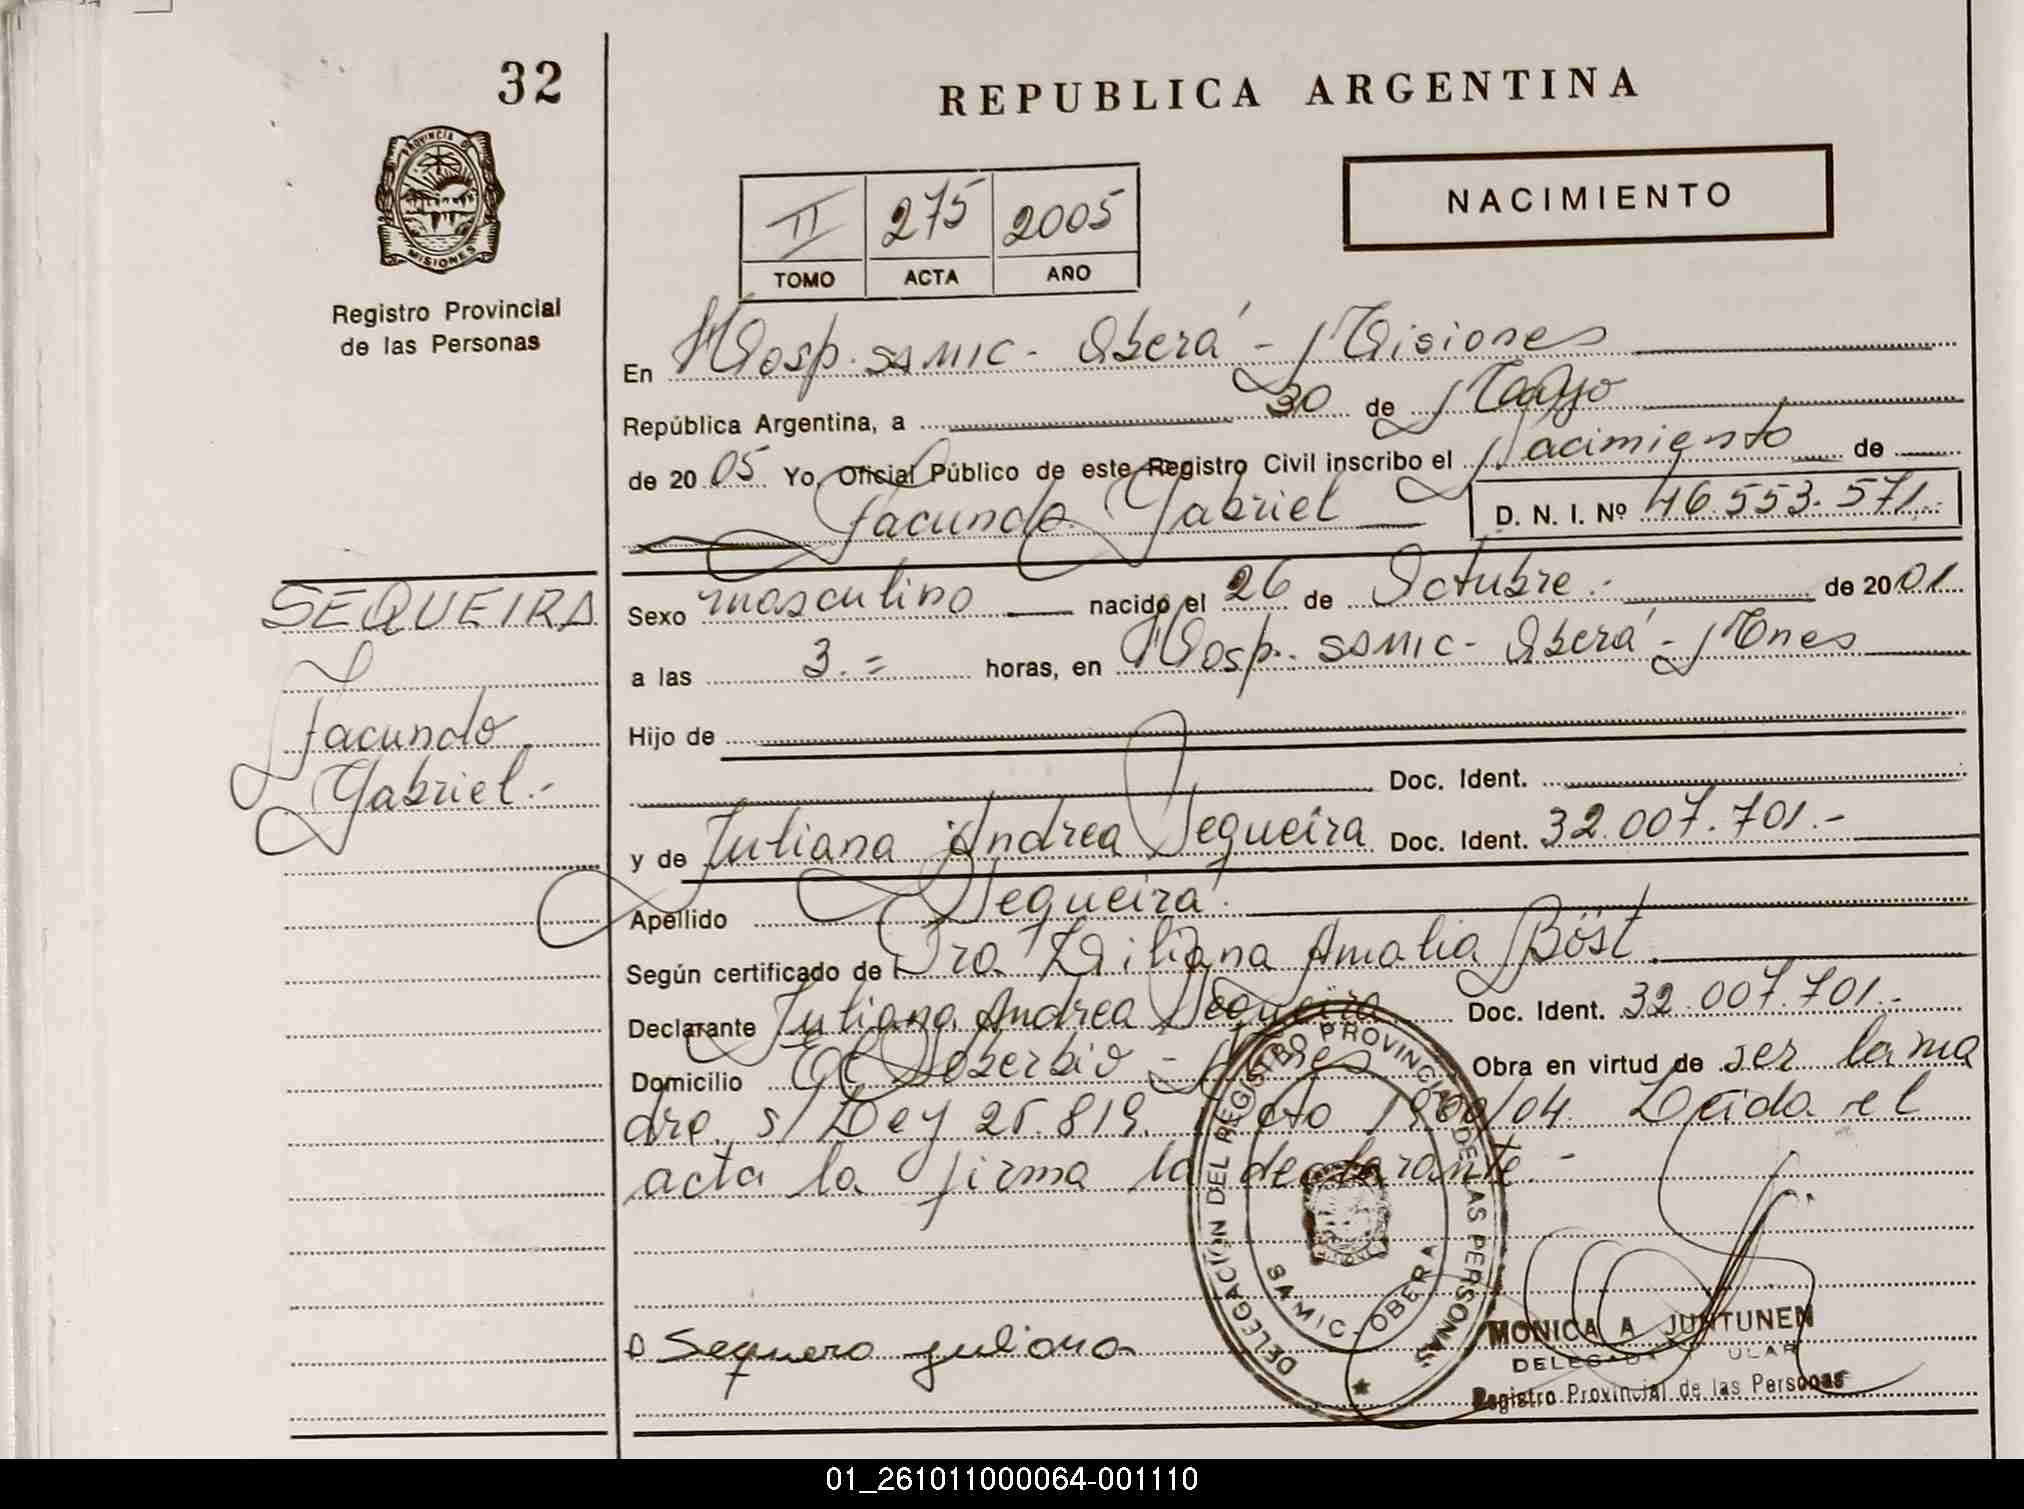 32
REPUBLICA ARGENTINA
PROVINCIA DE
MISIONES
Registro Provincial
de las Personas
NACIMIENTO
II 275 2005
TOMO ACTA AÑO
En Hosp. SAMIC - Oberá - Misiones
República Argentina, a 30 de Mayo
de 2005 Yo, Oficial Público de este Registro Civil inscribo el Nacimiento de
Facundo Gabriel D. N. I. Nº 46.553.571.-
SEQUEIRA
Facundo
Gabriel.-
Sexo masculino nacido el 26 de Octubre.- de 2001.
a las 3.= horas, en Hosp. SAMIC - Oberá - Mnes
Hijo de
Doc. Ident.
y de Juliana Andrea Sequeira Doc. Ident. 32.007.701.-
Apellido Sequeira.
Según certificado de Dra. Liliana Amalia Böst.
Declarante Juliana Andrea Sequeira Doc. Ident. 32.007.701.-
Domicilio El Soberbio - Mnes Obra en virtud de ser la ma
dre s/ Ley 25.819. Dcto 1900/04. Leída el
acta la firma la declarante.-
DELEGACIÓN DEL REGISTRO PROVINCIAL DE LAS PERSONAS
SAMIC - OBERA
Sequero juliana
MONICA A JUNTUNEN
Registro Provincial de las Personas
01_261011000064-001110